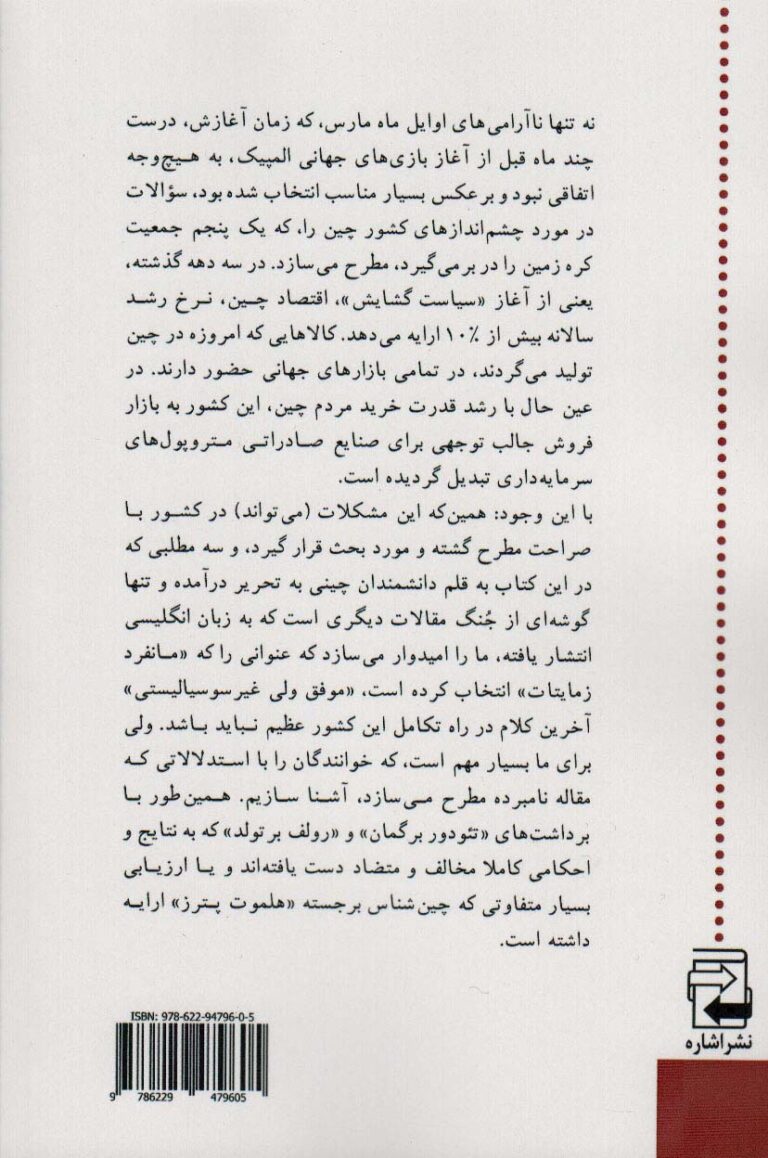 نه تنها ناآرامی‌های اوایل ماه مارس، که زمان آغازش، درست
چند ماه قبل از آغاز بازی‌های جهانی المپیک، به هیچ‌وجه
اتفاقی نبود و برعکس بسیار مناسب انتخاب شده بود، سؤالات
در مورد چشم‌اندازهای کشور چین را، که یک پنجم جمعیت
کره زمین را در برمی‌گیرد، مطرح می‌سازد. در سه دهه گذشته،
یعنی از آغاز «سیاست گشایش»، اقتصاد چین، نرخ رشد
سالانه بیش از ۱۰٪ ارایه می‌دهد. کالاهایی که امروزه در چین
تولید می‌گردند، در تمامی بازارهای جهانی حضور دارند. در
عین حال با رشد قدرت خرید مردم چین، این کشور به بازار
فروش جالب توجهی برای صنایع صادراتی متروپول‌های
سرمایه‌داری تبدیل گردیده است.
با این وجود: همین‌که این مشکلات (می‌تواند) در کشور با
صراحت مطرح گشته و مورد بحث قرار گیرد، و سه مطلبی که
در این کتاب به قلم دانشمندان چینی به تحریر درآمده و تنها
گوشه‌ای از جُنگ مقالات دیگری است که به زبان انگلیسی
انتشار یافته، ما را امیدوار می‌سازد که عنوانی را که «مانفرد
زمایتات» انتخاب کرده است، «موفق ولی غیرسوسیالیستی»
آخرین کلام در راه تکامل این کشور عظیم نباید باشد. ولی
برای ما بسیار مهم است، که خوانندگان را با استدلالاتی که
مقاله نامبرده مطرح می‌سازد، آشنا سازیم. همین‌طور با
برداشت‌های «تئودور برگمان» و «رولف برتولد» که به نتایج و
احکامی کاملا مخالف و متضاد دست یافته‌اند و یا ارزیابی
بسیار متفاوتی که چین‌شناس برجسته «هلموت پترز» ارایه
داشته است.
نشراشاره
ISBN: 978-622-94796-0-5
9 786229 479605